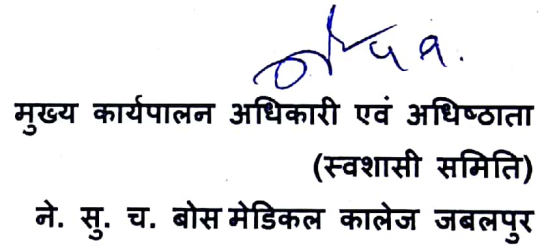 मुख्य कार्यपालन अधिकारी एवं अधिष्ठाता
(स्वशासी समिति)
ने. सु. च. बोस मेडिकल कालेज जबलपुर